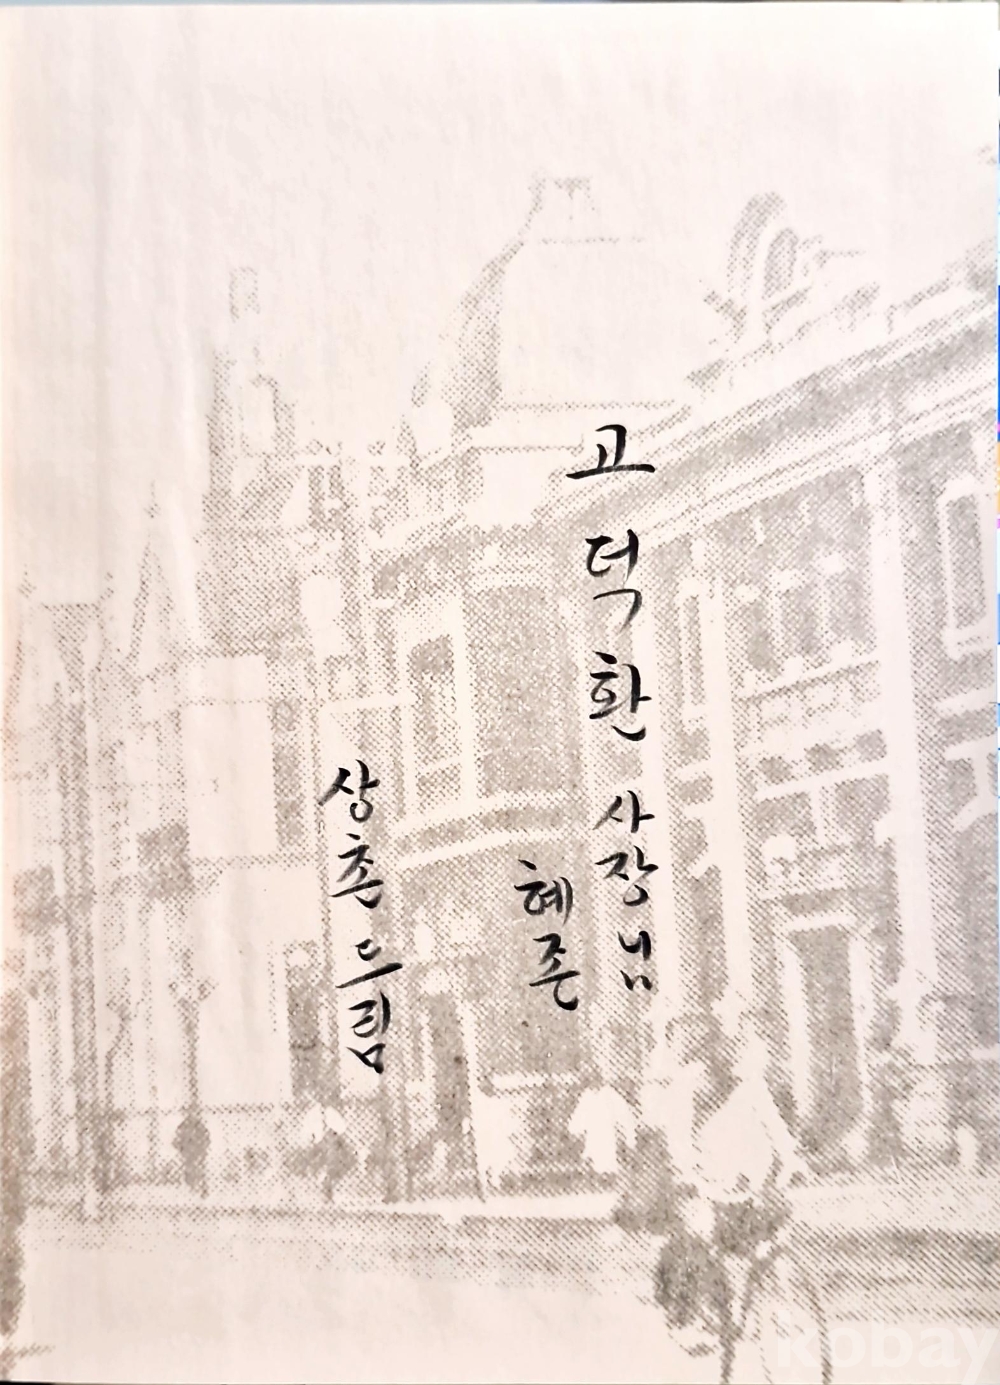 고덕환 사장님
혜존
상촌 드림
kobay